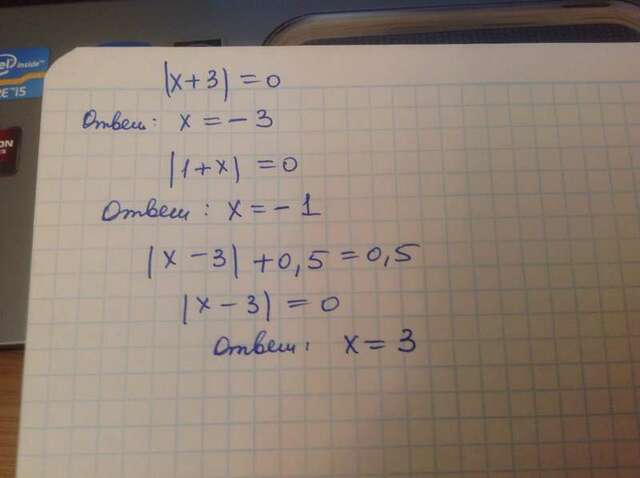 intel inside™
CORE™ i5
|x+3| = 0
Ответ: x = -3
|1+x| = 0
Ответ: x = -1
|x-3| + 0,5 = 0,5
|x-3| = 0
Ответ: x = 3